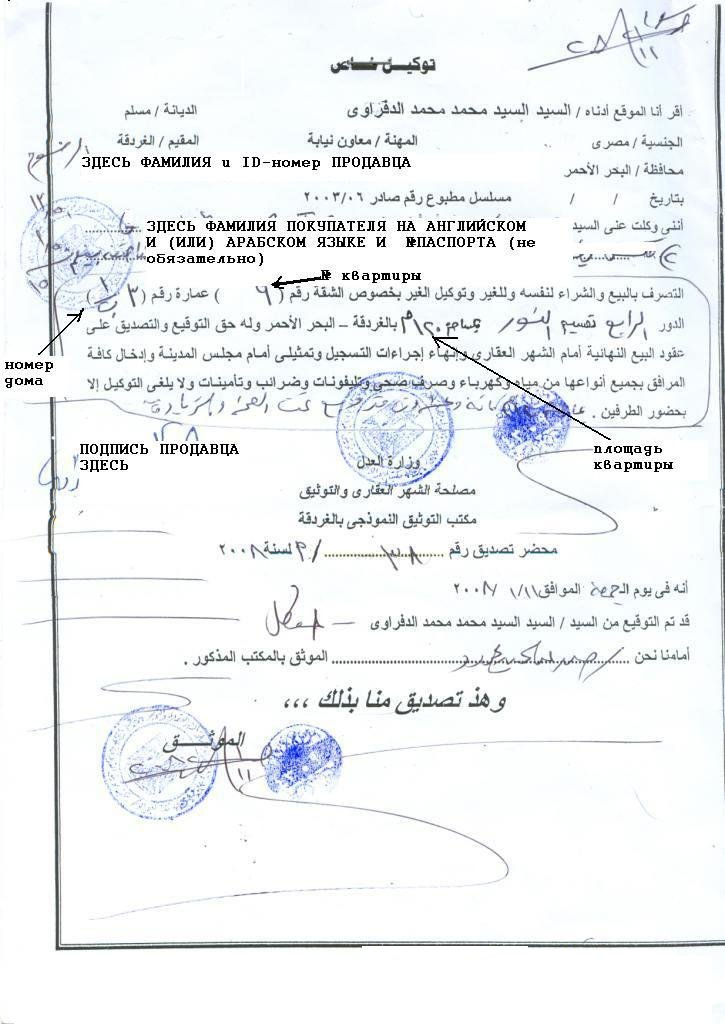 توكيل خاص
أقر أنا الموقع أدناه / السيد السيد محمد محمد الدفراوى الديانة / مسلم
الجنسية / مصرى المهنة / معاون نيابة المقيم / الغردقة
ЗДЕСЬ ФАМИЛИЯ и ID-номер ПРОДАВЦА
محافظة / البحر الأحمر
بتاريخ / / مسلسل مطبوع رقم صادر ٢٠٠٣/٠٦
ЗДЕСЬ ФАМИЛИЯ ПОКУПАТЕЛЯ НА АНГЛИЙСКОМ
أننى وكلت عنى السيد
И (ИЛИ) АРАБСКОМ ЯЗЫКЕ И №ПАСПОРТА (не
обязательно)
№ квартиры
التصرف بالبيع والشراء لنفسه وللغير وتوكيل الغير بخصوص الشقة رقم (٦) عمارة رقم (٣
الدور الرابع تقسيم النور بالغردقة – البحر الأحمر وله حق التوقيع والتصديق على
номер
дома
عقود البيع النهائية أمام الشهر العقارى وإنهاء إجراءات التسجيل وتمثيلى أمام مجلس المدينة وإدخال كافة
المرافق بجميع أنواعها من مياه وكهرباء وصرف صحى وتليفونات وضرائب وتأمينات ولا يلغى التوكيل إلا
بحضور الطرفين .
ПОДПИСЬ ПРОДАВЦА
ЗДЕСЬ
площадь
квартиры
وزارة العدل
مصلحة الشهر العقارى والتوثيق
مكتب التوثيق النموذجى بالغردقة
محضر تصديق رقم لسنة ٢٠٠٨
أنه فى يوم الجمعة الموافق ١/١١/ ٢٠٠٨
قد تم التوقيع من السيد / السيد السيد محمد محمد الدفراوى
أمامنا نحن الموثق بالمكتب المذكور .
وهذ تصديق منا بذلك ،،،
الموثق